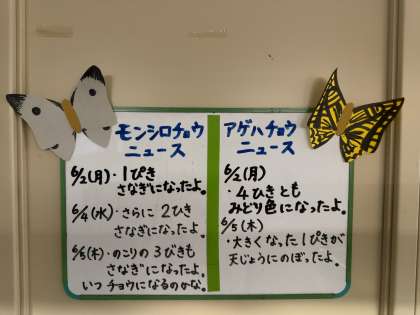 モンシロチョウ
ニュース
6/2(月)・1ぴき
さなぎになったよ。
6/4(水)・さらに2ひき
さなぎになったよ。
6/5(木)・のこりの3びきも
さなぎになったよ。
いつチョウになるのかな。
アゲハチョウ
ニュース
6/2(月)
・4ひきとも
みどり色になったよ。
6/5(木)
・大きくなった1ぴきが
天じょうにのぼったよ。